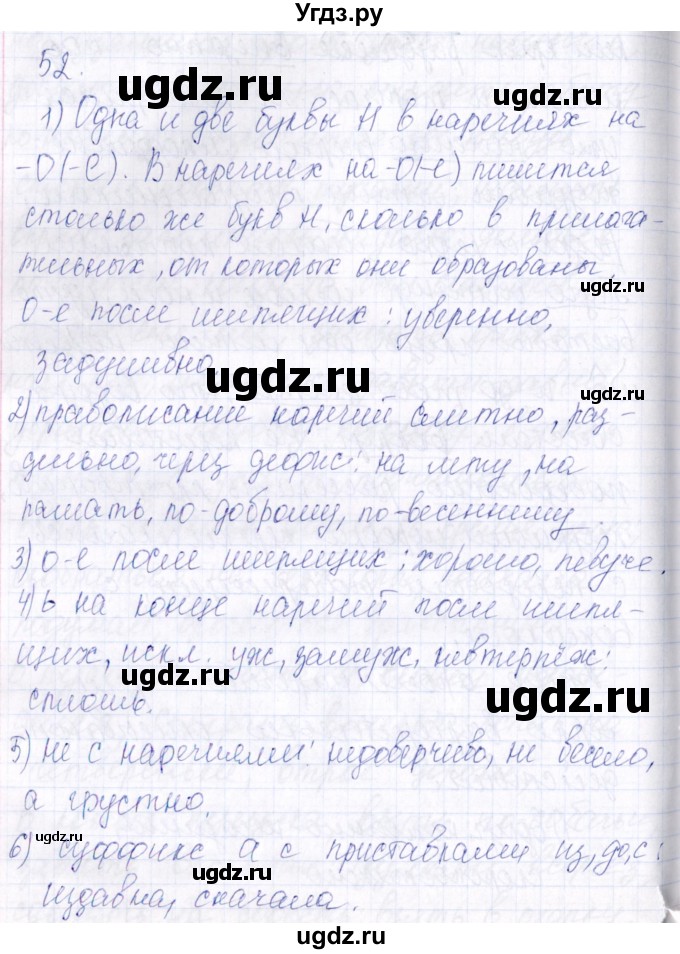 Угдз.ру
52.
1) Одна и две буквы Н в наречиях на
-О(-Е). В наречиях на -О(-е) пишется
столько же букв Н, сколько в прилага-
тельных, от которых они образованы.
О-е после шипящих: уверенно,
задушивно.
2) правописание наречий слитно, раз-
дельно, через дефис: на лету, на
память, по-доброму, по-весеннему.
3) о-е после шипящих: хорошо, певуче.
4) ь на конце наречий после шипя-
щих, искл. уж, замуж, невтерпёж:
сплошь.
5) не с наречиями: недоверчиво, не весело,
а грустно.
6) суффикс а с приставками из, до, с:
издавна, сначала.
ugdz.ru
ugdz.ru
ugdz.ru
ugdz.ru
ugdz.ru
ugdz.ru
ugdz.ru
ugdz.ru
ugdz.ru
ugdz.ru